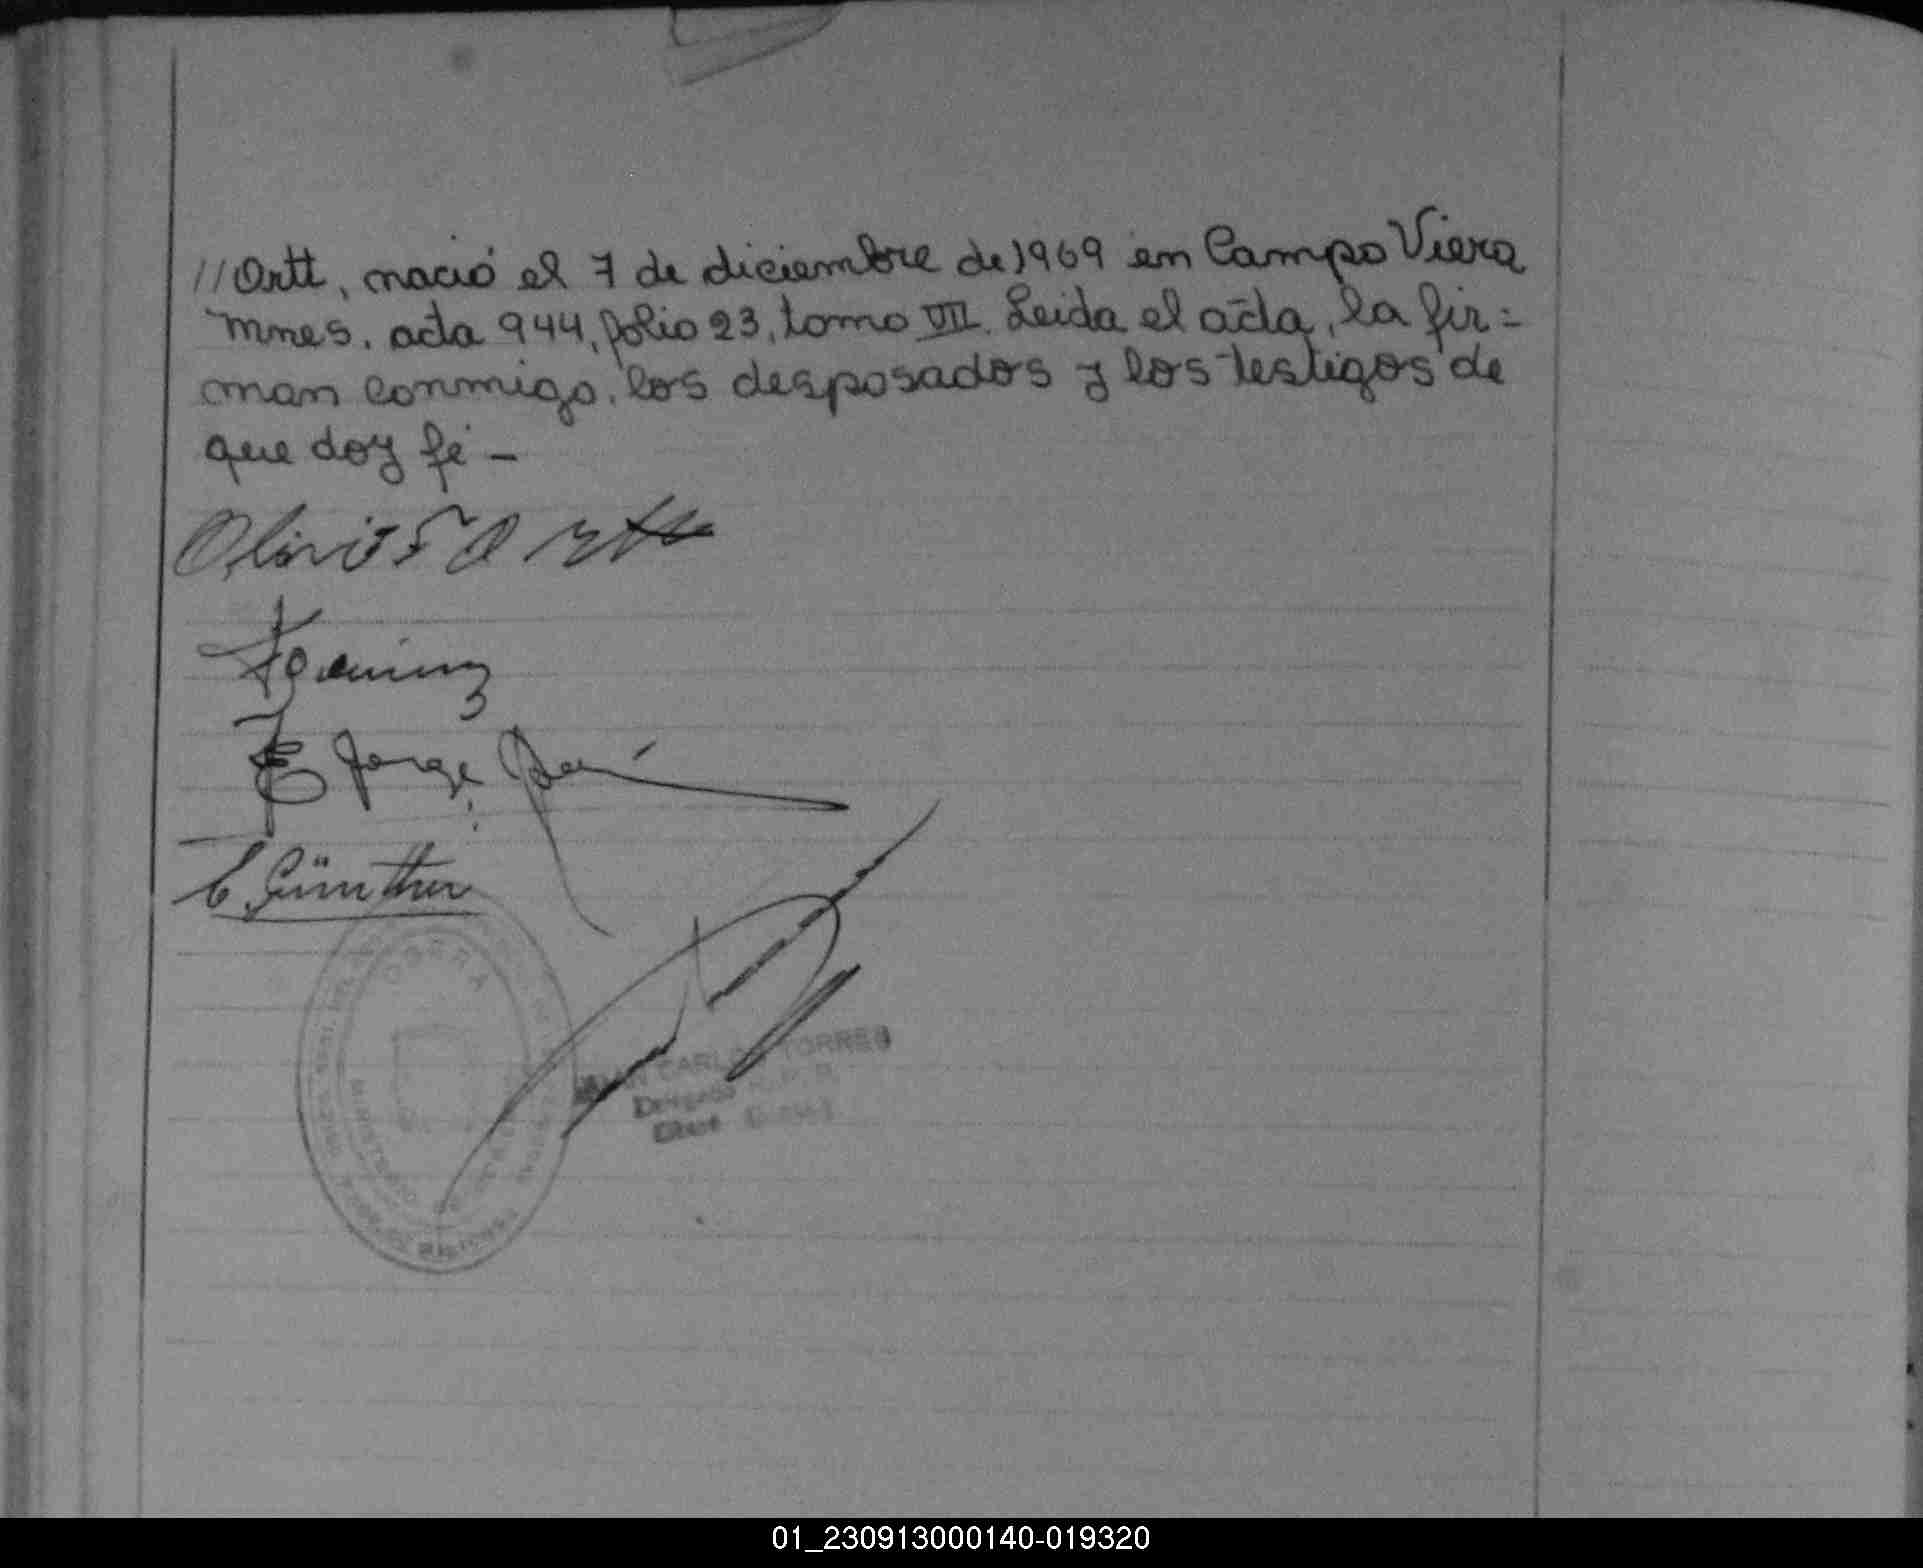 // Ortt, nació el 7 de diciembre de 1969 en Campo Viera
Mnes. acta 944, folio 23, tomo VIII. Leida el acta, la fir=
man conmigo, los desposados y los testigos de
que doy fé -
Olinio Ortt
E Jorge
E. Günther
OBERA
MINISTERIO
CARLOS TORRES
Delegado
01_230913000140-019320